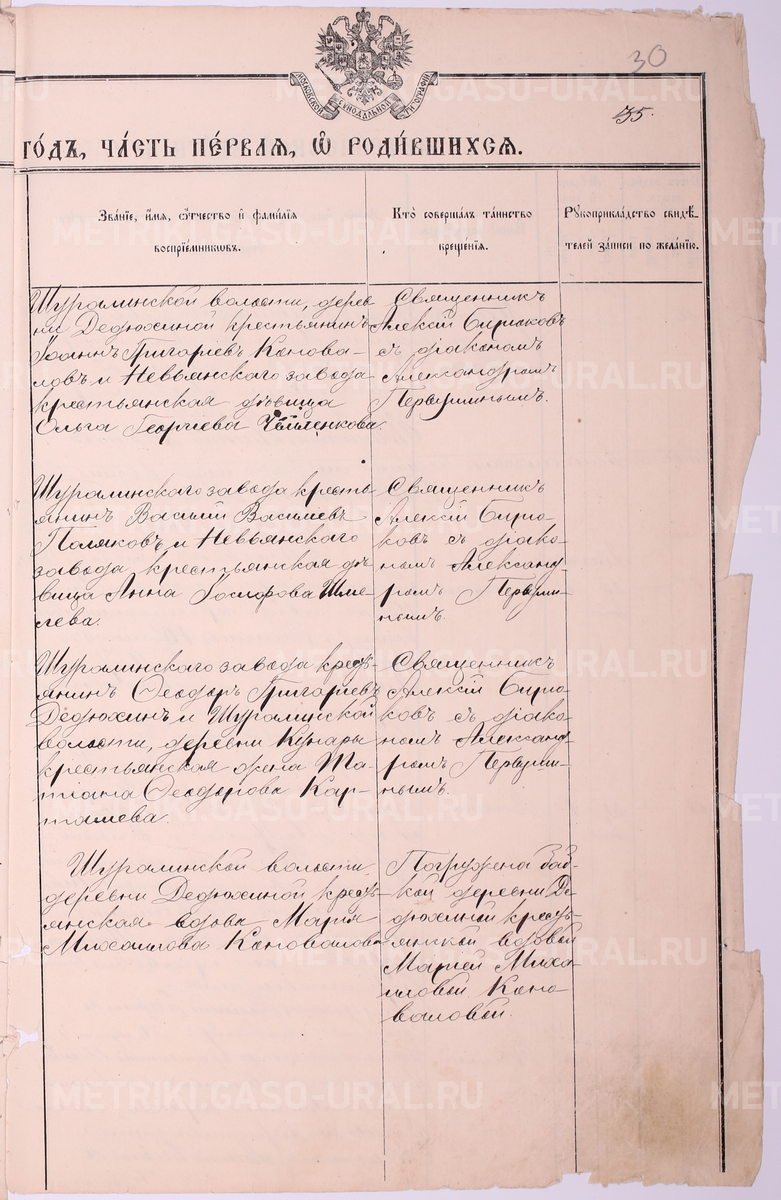 30
35.
МОСКОВСКОЙ СѴНОДАЛЬНОЙ ТИПОГРАФІИ
ГО́ДЪ, ЧА́СТЬ ПЕ́РВАЯ, Ѡ҆ РОДИ́ВШИХСЯ.
Зва́нїе, и҆́мя, ѻ҆́тчество и҆ фами́лїя
воспрїе́мникѡвъ.
Кто̀ соверша́лъ та́инство
креще́нїя.
Рꙋкоприкла́дство свидѣ́-
телей за́писи по жела́нїю.
Шуралинской волости, дерев-
ни Дедюхиной крестьянинъ
Іоаннъ Григоріевъ Конова-
ловъ и Невьянскаго завода
крестьянская дѣвица
Ольга Георгиева
Священникъ
Алексій Бирюковъ
съ діакономъ
Александромъ
Первушинымъ.
Шуралинскаго завода кресть-
янинъ Василій Василіевъ
Поляковъ и Невьянскаго
завода крестьянская дѣ-
вица Анна Іосифова Шме-
лева.
Священникъ
Алексій Бирю-
ковъ съ діако-
номъ Александ-
ромъ Первуши-
нымъ.
Шуралинскаго завода кресть-
янинъ Ѳеодоръ Григоріевъ
Дедюхинъ и Шуралинской
волости, деревни Кунары
крестьянская жена Та-
тіана Ѳеодорова Кар-
ташева.
Священникъ
Алексій Бирю-
ковъ съ діако-
номъ Александ-
ромъ Первуши-
нымъ.
Шуралинской волости,
деревни Дедюхиной кресть-
янская вдова Марія
Михаилова Коновалова
Погружена баб-
кой деревни Де-
дюхиной кресть-
янкой вдовой
Маріей Миха-
иловой Коно-
валовой.
METRIKI.GASO-URAL.RU